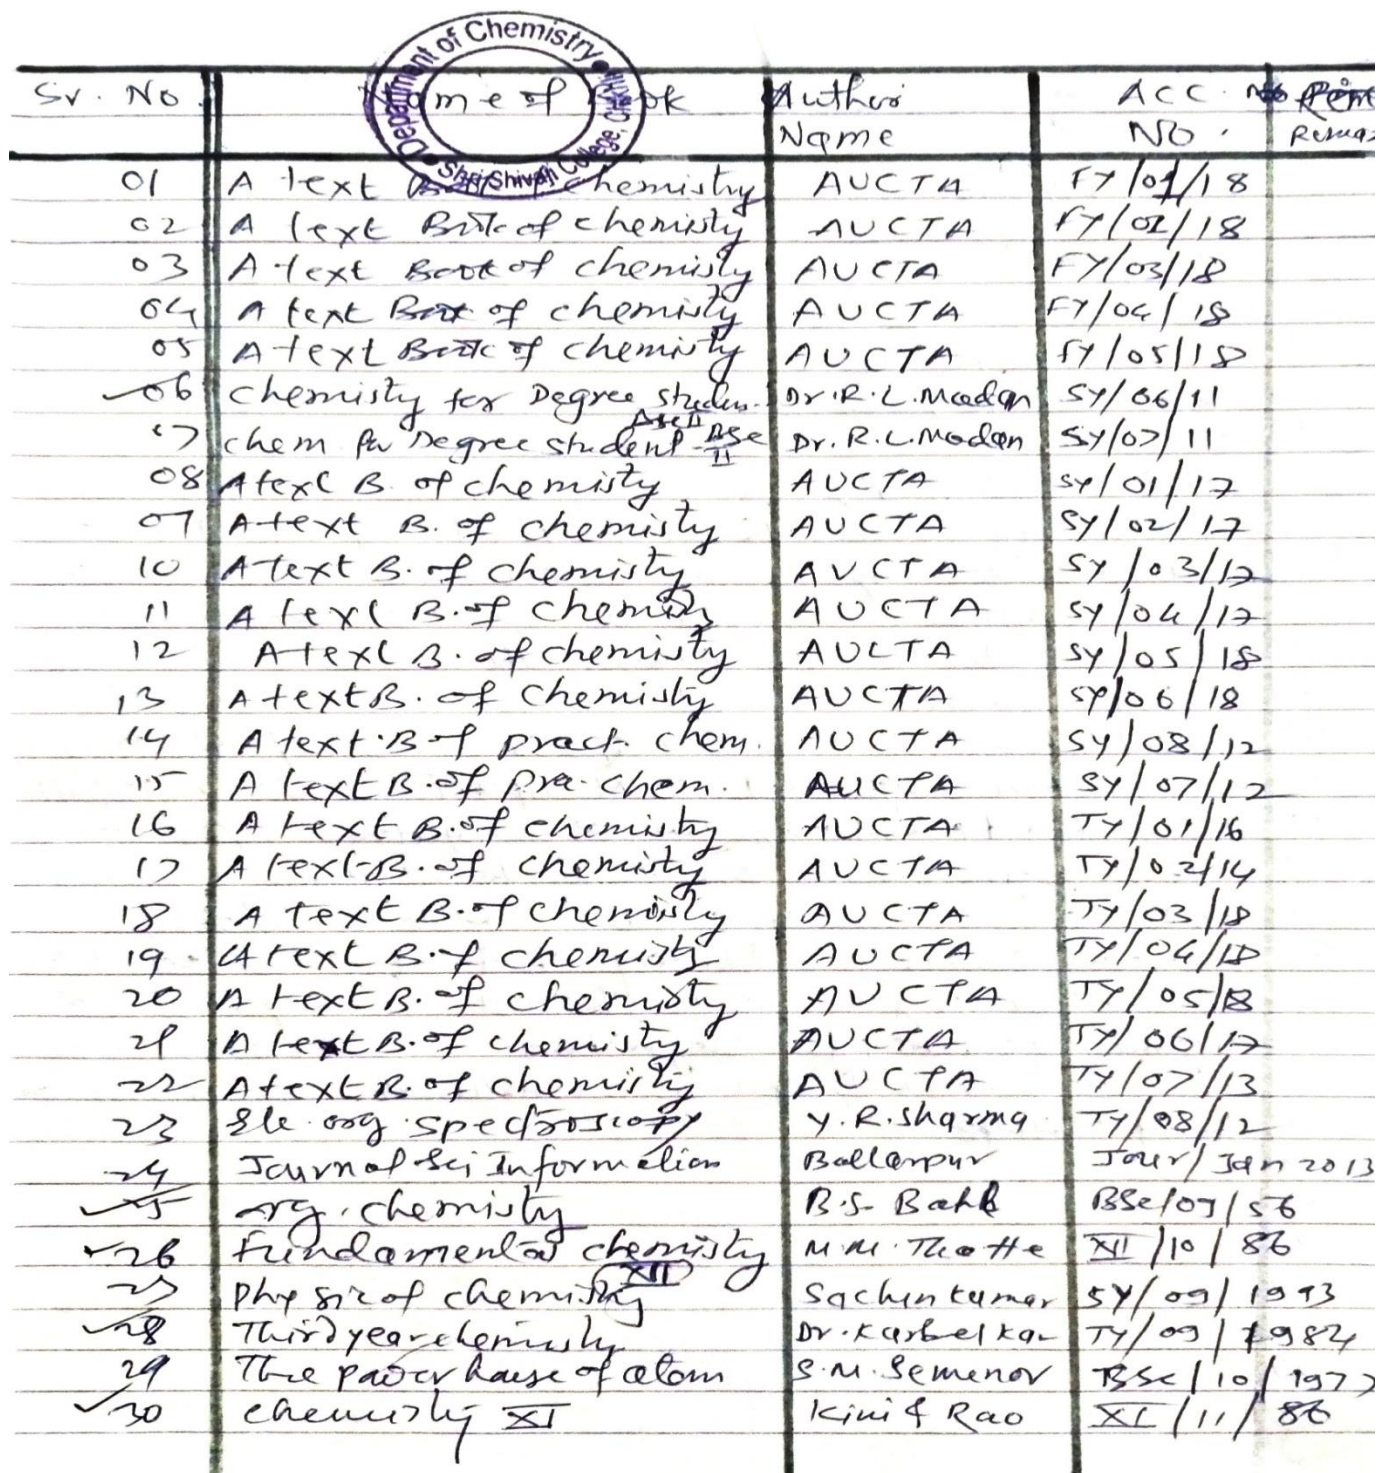 Department of Chemistry
Shri Shivaji College, Chikhli
Sr. No. Name of Book Author Name ACC. No. Remar
01 A text Book of chemistry AUCTA FY/01/18
02 A text Book of chemistry AUCTA FY/02/18
03 A text Book of chemistry AUCTA FY/03/18
04 A text Book of chemistry AUCTA FY/04/18
05 A text Book of chemistry AUCTA FY/05/18
06 chemistry for Degree studen. BSc II Dr. R. L. Madan SY/06/11
07 chem for Degree student BSc II Dr. R. L. Madan SY/07/11
08 A text B. of chemistry AUCTA SY/01/17
09 A text B. of chemistry AUCTA SY/02/17
10 A text B. of chemistry AUCTA SY/03/17
11 A text B. of chemistry AUCTA SY/04/17
12 A text B. of chemistry AUCTA SY/05/18
13 A text B. of chemistry AUCTA SY/06/18
14 A text B of pract. chem. AUCTA SY/08/12
15 A text B. of pra. chem. AUCTA SY/07/12
16 A text B. of chemistry AUCTA TY/01/16
17 A text B. of chemistry AUCTA TY/02/14
18 A text B. of chemistry AUCTA TY/03/18
19 A text B. of chemistry AUCTA TY/04/18
20 A text B. of chemistry AUCTA TY/05/18
21 A text B. of chemistry AUCTA TY/06/17
22 A text B. of chemistry AUCTA TY/07/13
23 Ele. org. spectroscopy Y. R. Sharma TY/08/12
24 Journal Sci Information Ballarpur Jour/Jan 2013
25 org. chemistry B.S. Bahl BSc/09/56
26 Fundamental chemistry XII M.M. Thatte XII/10/86
27 of chemistry Sachin kumar SY/09/1993
28 Third year chemistry Dr. TY/09/1982
29 The power house of atom S.M. Semenov BSc/10/1977
30 chemistry XI Kini & Rao XI/11/86